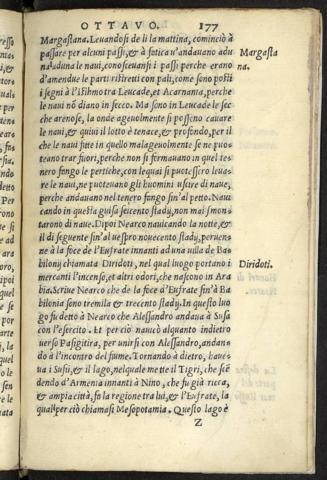 OTTAVO. 177
Margastana. Leuandosi de li la mattina, cominciò à
passare per alcuni passi, & à fatica u'andauano adu
na aduna le naui, conosceuansi i passi perche erano
d'amendue le parti ristretti con pali, come sono posti
i segni à l'Isthmo tra Leucade, et Acarnania, perche
le naui nō diano in secco. Ma sono in Leucade le sec
che arenose, la onde ageuolmente si possono cauare
le naui, & quiui il lotto è tenace, & profondo, per il
che le naui fitte in quello malageuolmente se ne puo-
teano trar fuori, perche non si fermauano in quel te-
nero fango le pertiche, con lequai si puotessero leua-
re le naui, ne puoteuano gli huomini uscire di naue,
perche andauano nel tenero fango fin'al petto. Naui
cando in questa guisa seicento stadij, non mai smon-
tarono di naue. Dipoi Nearco nauicando la notte, &
il di seguente fin'al uespro nouecento stadij, peruen-
ne à la foce de l'Eufrate innanti ad una uilla de Ba-
bilonij chiamata Diridoti, nel qual luogo portano i
mercanti l'incenso, et altri odori, che nascono in Ara
bia. Scriue Nearco che de la foce d'Eufrate fin'à Ba
bilonia sono tremila & trecento stadij. In questo luo
go fu detto à Nearco che Alessandro andaua à Susa
con l'esercito. Et per ciò nauicò alquanto indietro
uerso Pasigitira, per unir si con Alessandro, andan-
do à l'incontro del fiume. Tornando à dietro, haue-
ua i Susij, & il lago, nelquale mette il Tigri, che scē
dendo d'Armenia innanti à Nino, che fu già ricca,
& ampia città, fa la regione tra lui, & l'Eufrate, la
qual per ciò chiamasi Mesopotamia. Questo lago è
Z
Margasta
na.
Diridoti.